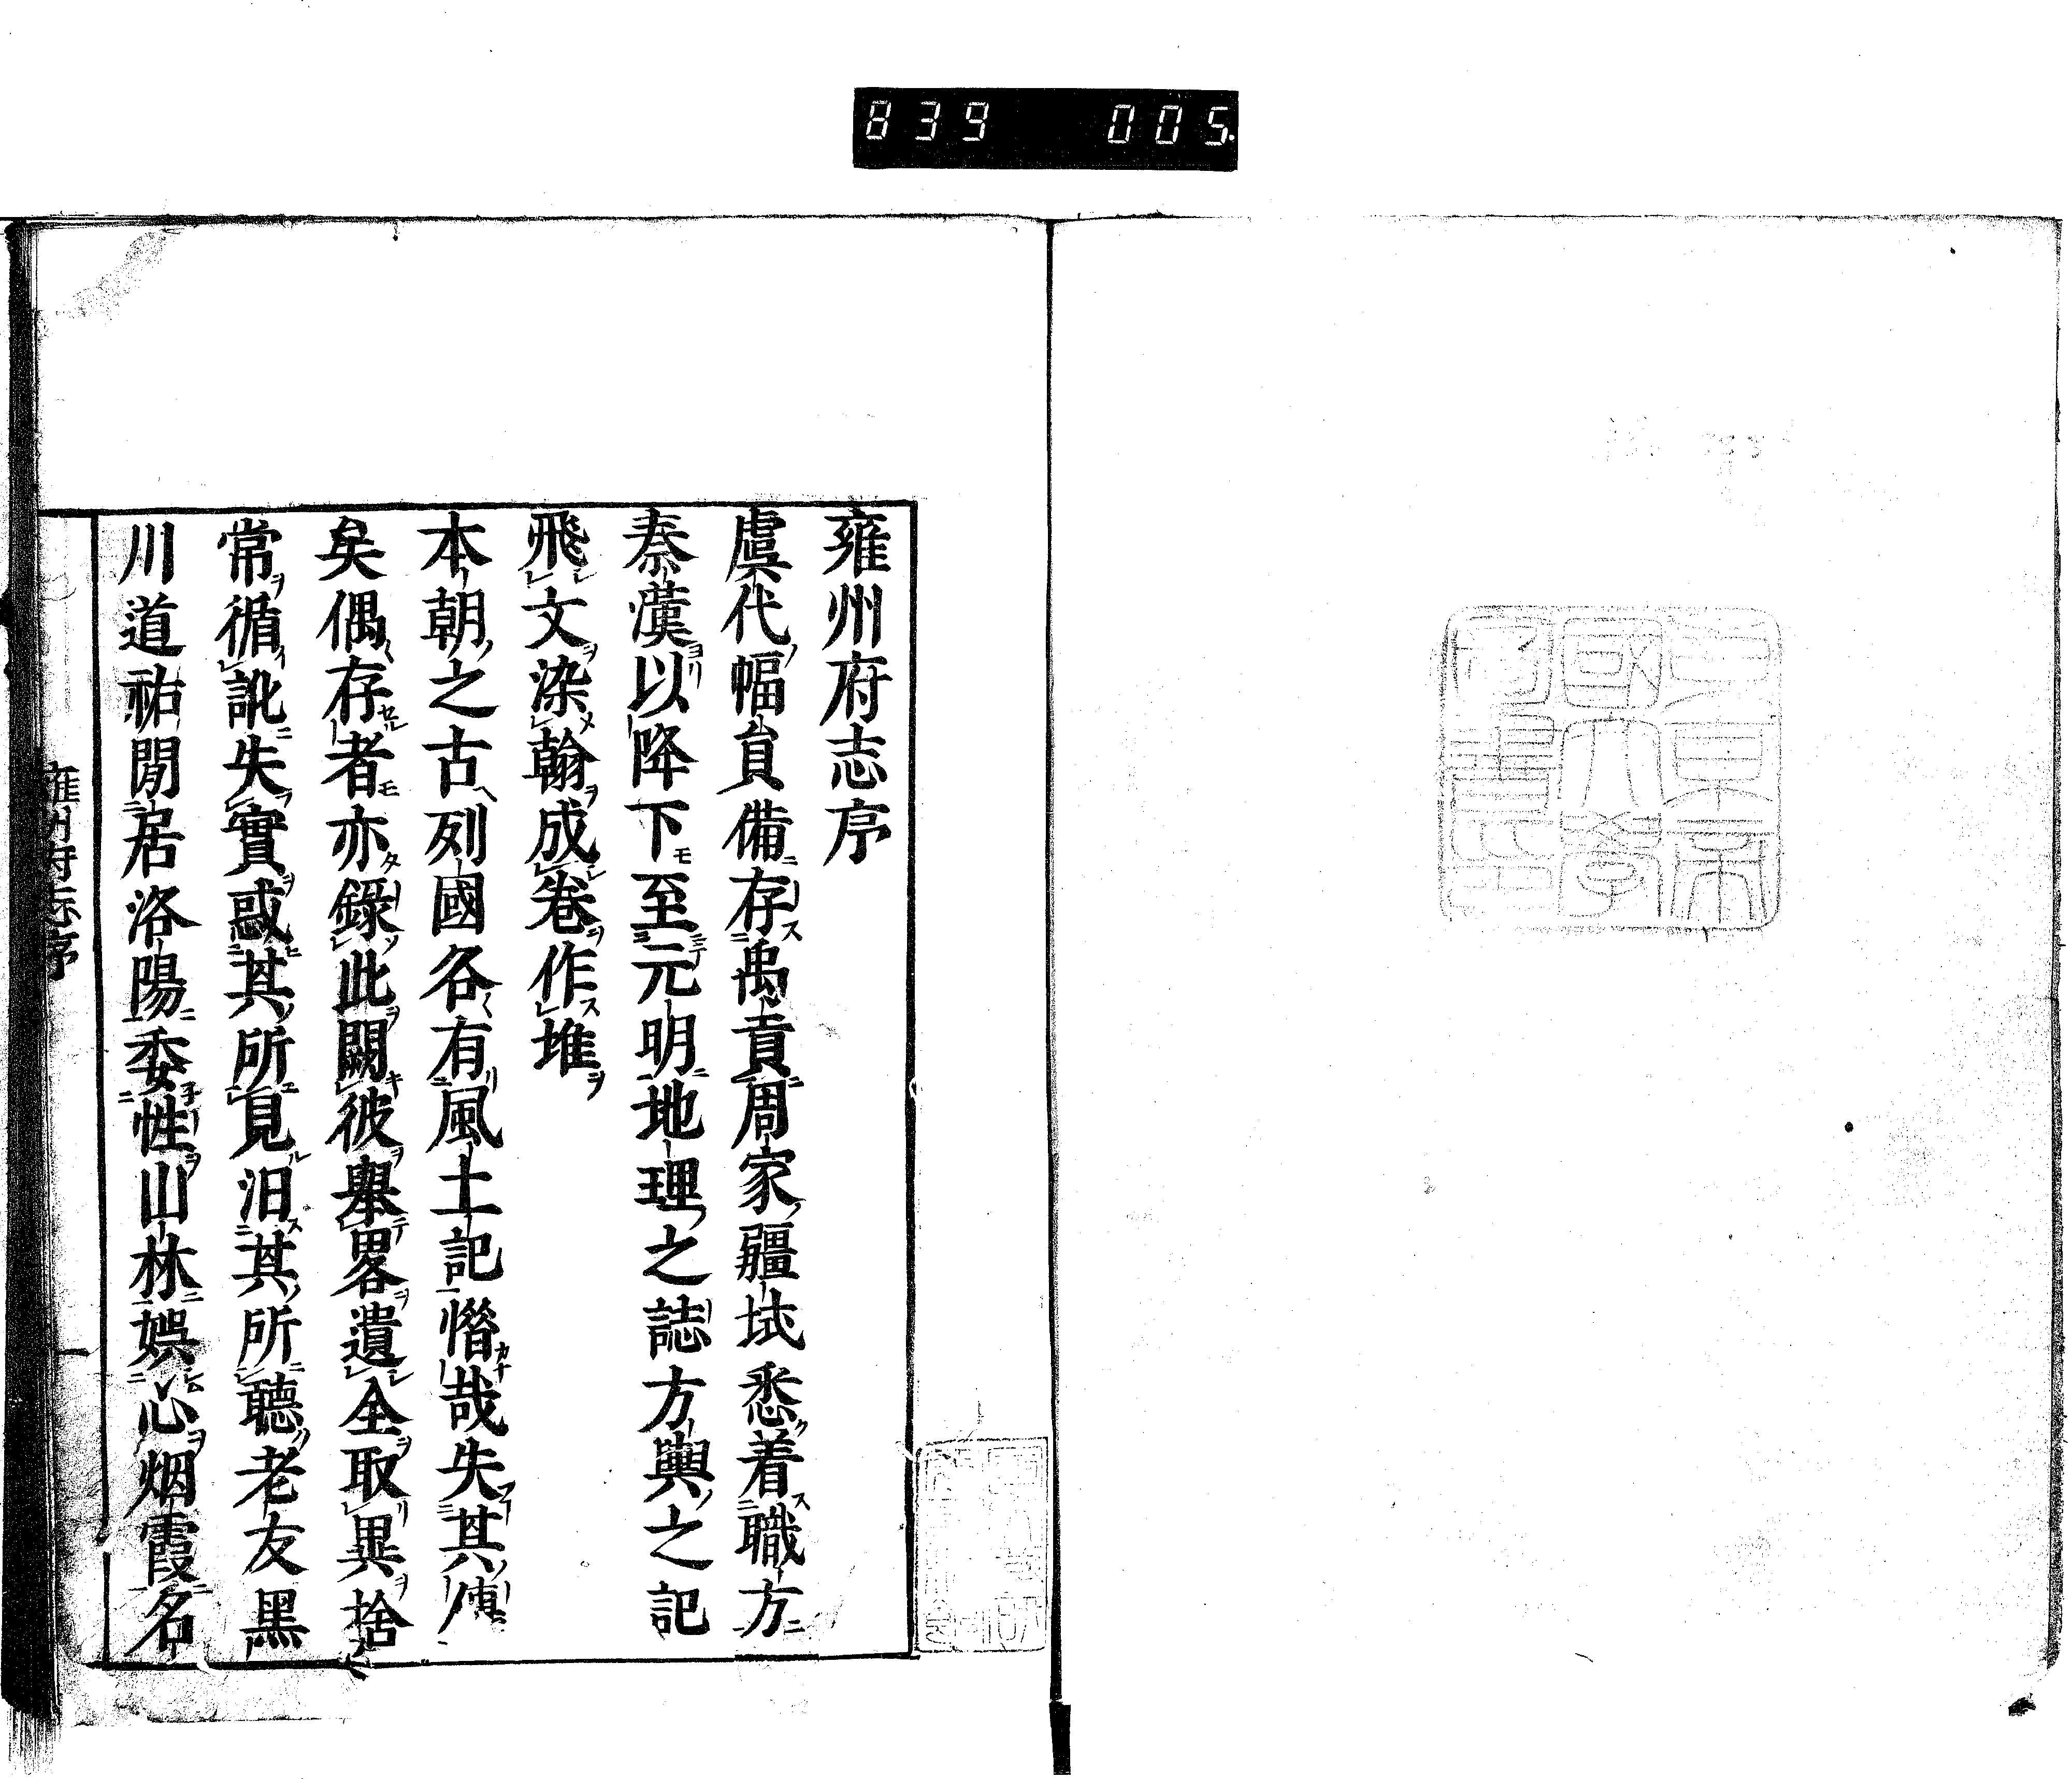 839 005
雍州府志序
虞代幅員備存禹貢周家疆域悉着職方
秦漢以降下至元明地理之誌方輿之記
飛文染翰成卷作堆
本朝之古列國各有風土記惜哉失其傳
矣偶存者亦錄此闕彼舉畧遺全取異捨
常循訛失實惑其所見汨其所聽老友黑
川道祐閒居洛陽委性山林娯心烟霞名
雍州府志序
一